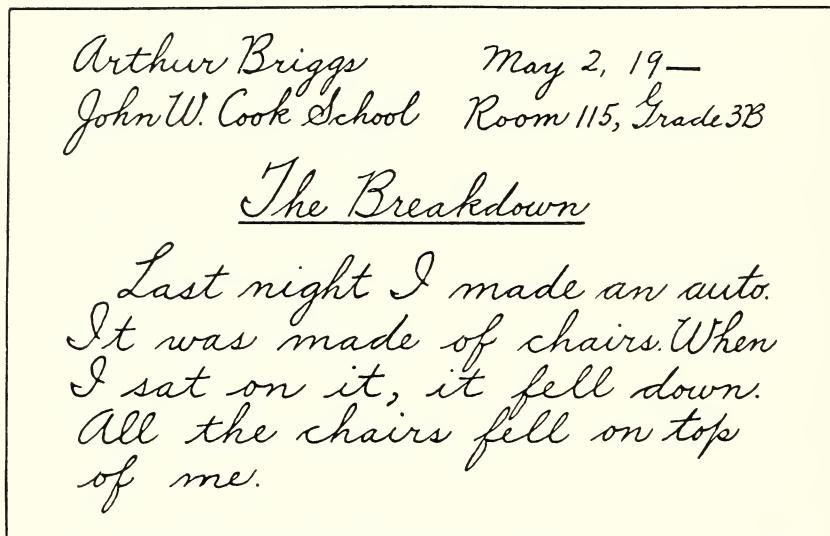 Arthur Briggs May 2, 19—
John W. Cook School Room 115, Grade 3B
The Breakdown
Last night I made an auto.
It was made of chairs. When
I sat on it, it fell down.
All the chairs fell on top
of me.